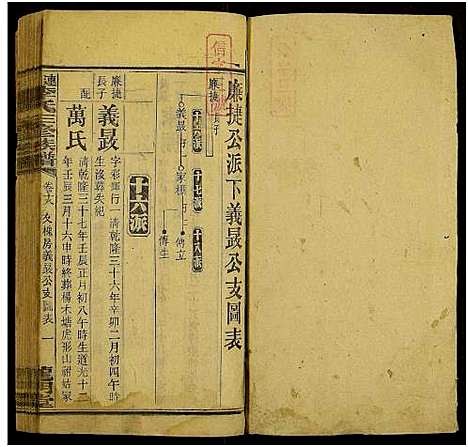 廉捷公派下義晸公支圖表
廉捷長子
十六派
十七派
十八派
義晸
家棟
傳立
傳生
十六派
廉捷長子
義晸
字彩輝行一清乾隆三十六年辛卯二月初四午時
生沒葬失紀
配
萬氏
清乾隆三十七年壬辰正月初八午時生道光十二
年壬辰三月十六申時終葬楊木塘虎形山祔姑冢
氏三修族譜
卷十六 友樑房義晸公支圖表 一